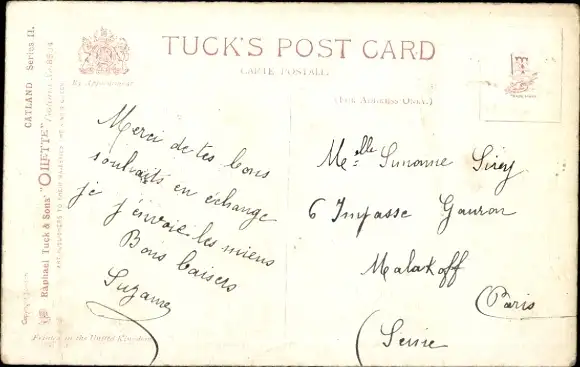 TUCK'S POST CARD
CARTE POSTALE
By Appointment
(FOR ADDRESS ONLY.)
CATLAND Series II.
Raphael Tuck & Sons' "OILETTE"
ART PUBLISHERS TO THEIR MAJESTIES
Printed in the United Kingdom
Merci de tes bons
souhaits en échange
je j'envoie les miens
Bons baisers
Suzanne
Melle Suzanne Sirey
6 Impasse Gauron
Malakoff
(Paris
(Seine